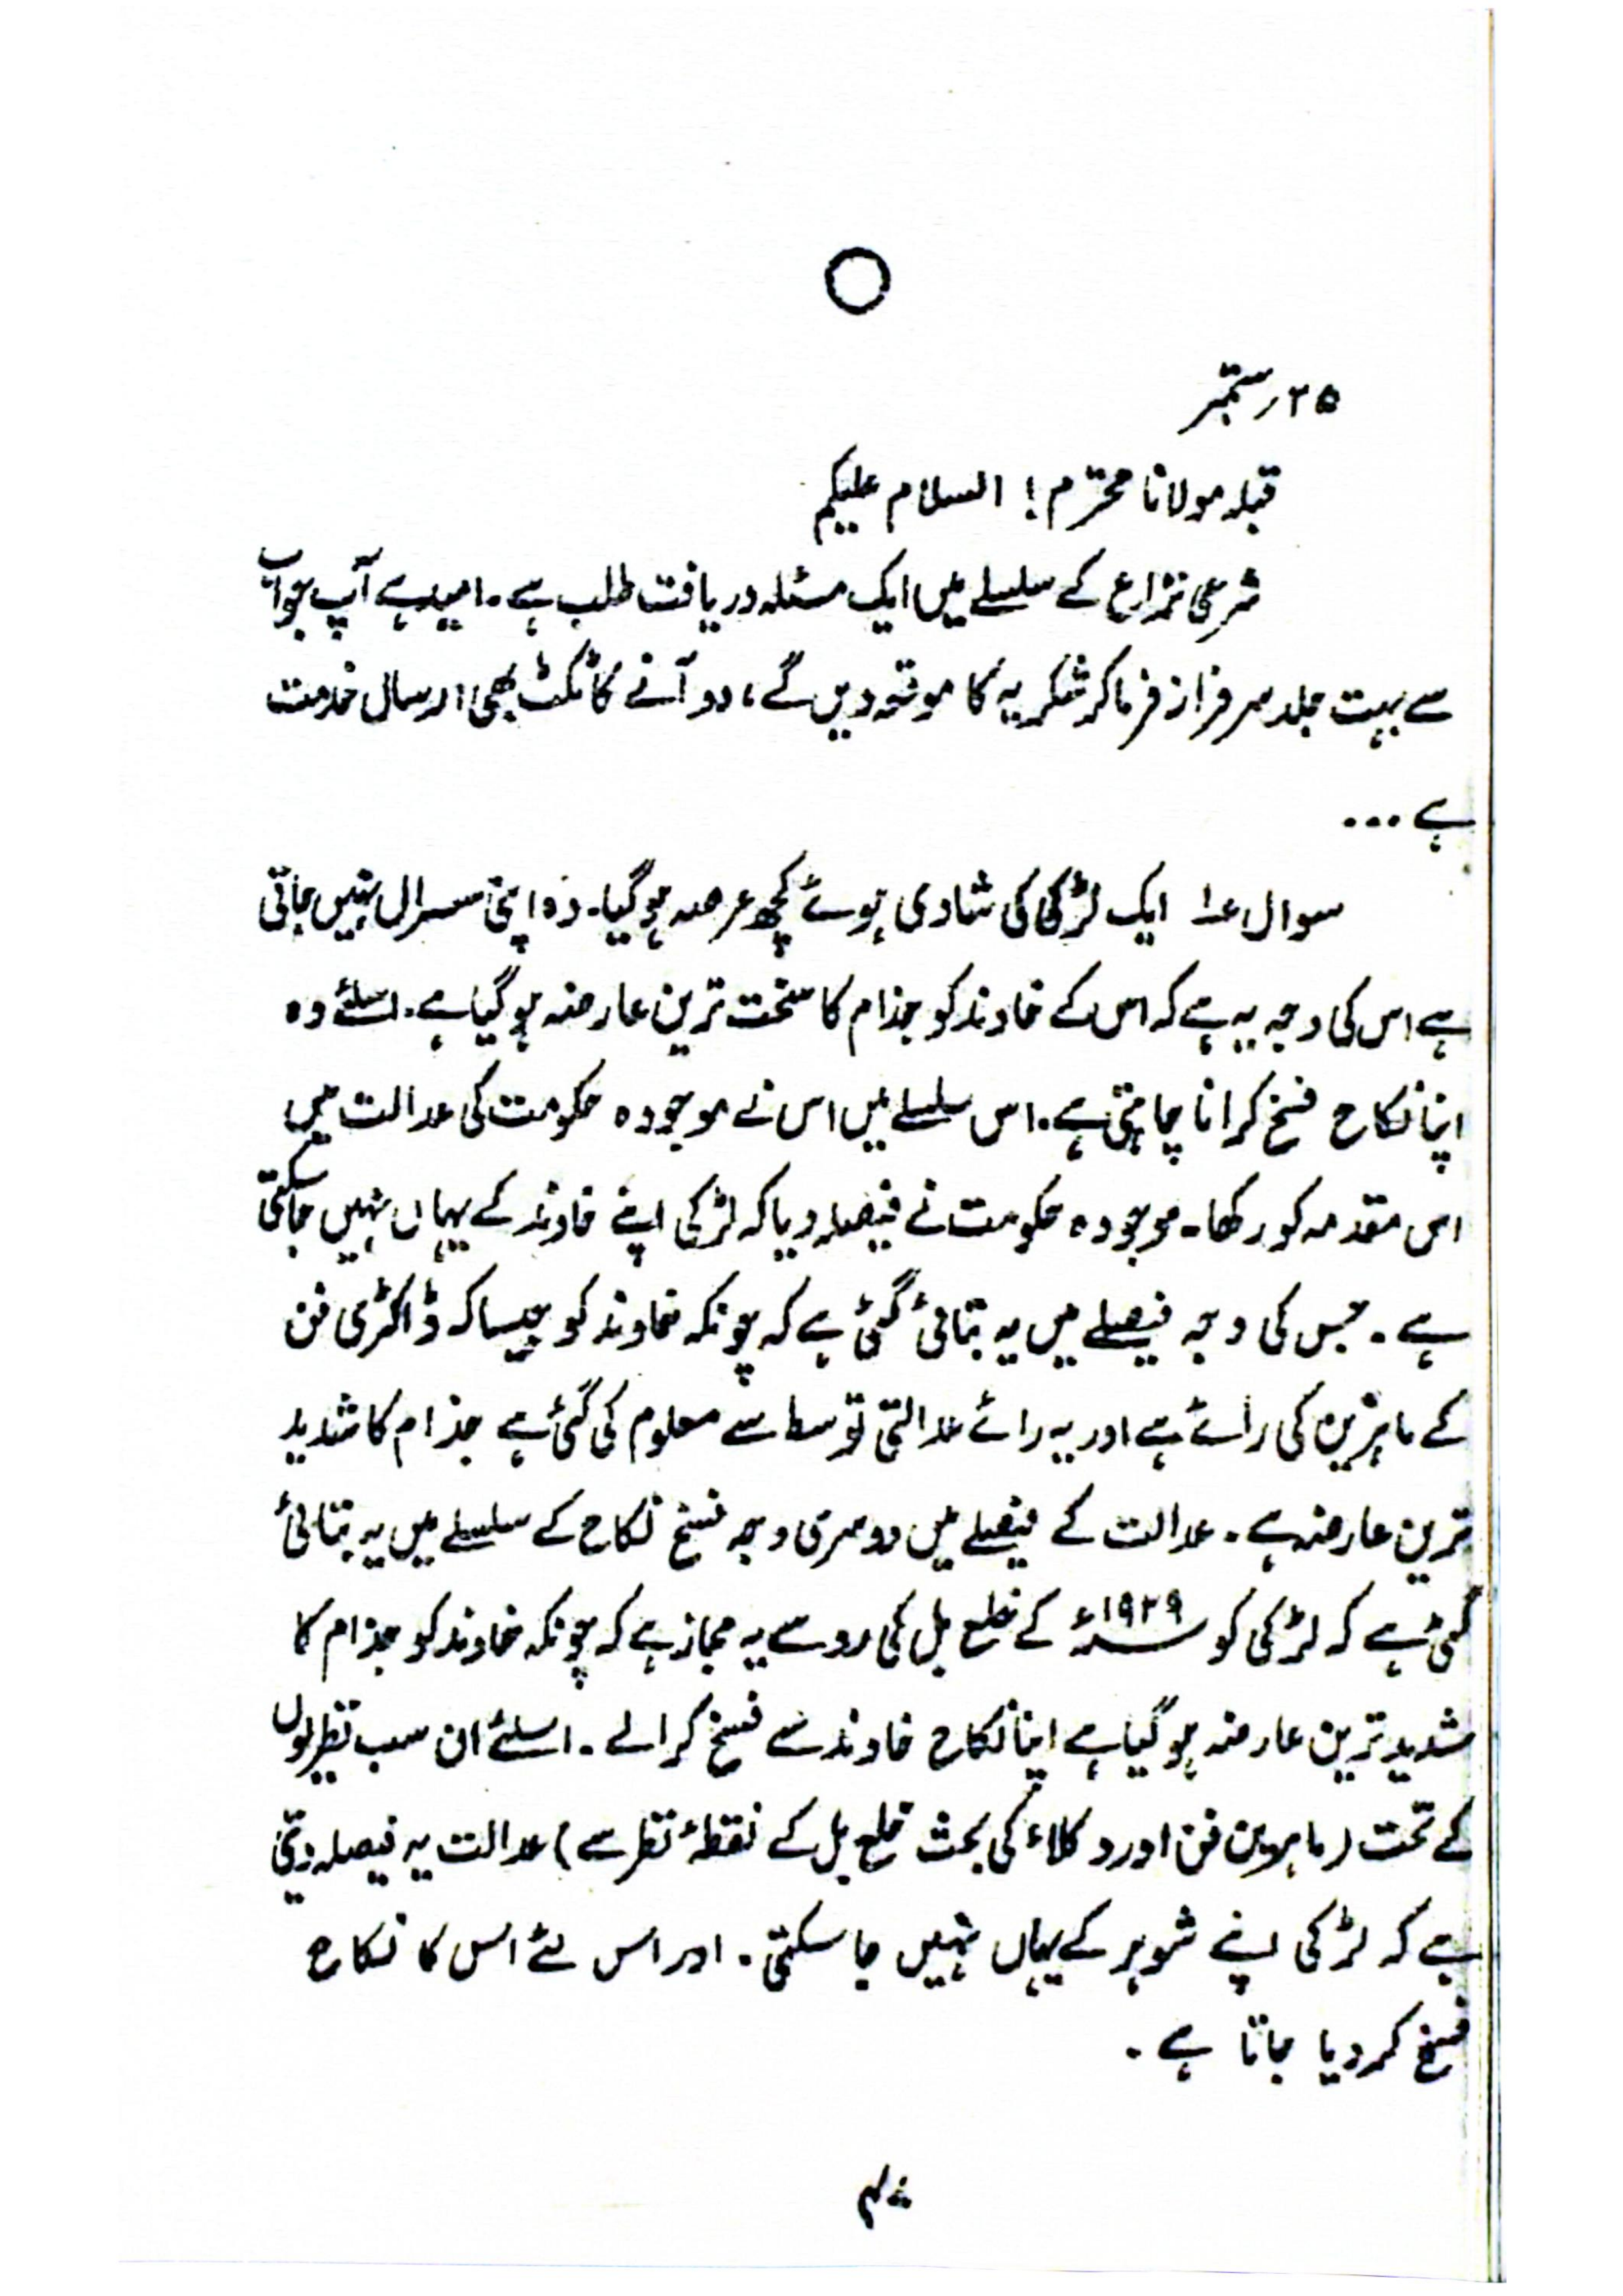 ۲۵ ستمبر
قبلہ مولانا محترم! السلام علیکم
شرعی نزاع کے سلسلے میں ایک مسئلہ دریافت طلب ہے۔ امید ہے آپ جواب
سے بہت جلد سرفراز فرما کر شکریہ کا موقعہ دیں گے، دو آنے کا ٹکٹ بھی ارسال خدمت
ہے ...
سوال ۱ ایک لڑکی کی شادی ہوئے کچھ عرصہ ہوگیا۔ وہ اپنی سسرال نہیں جاتی
ہے اس کی وجہ یہ ہے کہ اس کے خاوند کو جذام کا سخت ترین عارضہ ہوگیا ہے۔ اسلئے وہ
اپنا نکاح فسخ کرانا چاہتی ہے۔ اس سلسلے میں اس نے موجودہ حکومت کی عدالت میں
اس مقدمہ کو رکھا۔ موجودہ حکومت نے فیصلہ دیا کہ لڑکی اپنے خاوند کے یہاں نہیں جاسکتی
ہے۔ جس کی وجہ فیصلے میں یہ بتائی گئی ہے کہ چونکہ خاوند کو جیسا کہ ڈاکٹری فن
کے ماہرین کی رائے ہے اور یہ رائے عدالتی توسط سے معلوم کی گئی ہے جذام کا شدید
ترین عارضہ ہے۔ عدالت کے فیصلے میں دوسری وجہ فسخ نکاح کے سلسلے میں یہ بتائی
گئی ہے کہ لڑکی کو ۱۹۳۹ء کے خلع بل کی رو سے یہ مجاز ہے کہ چونکہ خاوند کو جذام کا
شدید ترین عارضہ ہوگیا ہے اپنا نکاح خاوند سے فسخ کرالے۔ اسلئے ان سب نظریوں
کے تحت (ماہرین فن اور وکلاء کی بحث خلع بل کے نقطۂ نظر سے) عدالت یہ فیصلہ دیتی
ہے کہ لڑکی اپنے شوہر کے یہاں نہیں جا سکتی۔ اور اس لئے اس کا نکاح
فسخ کردیا جاتا ہے۔